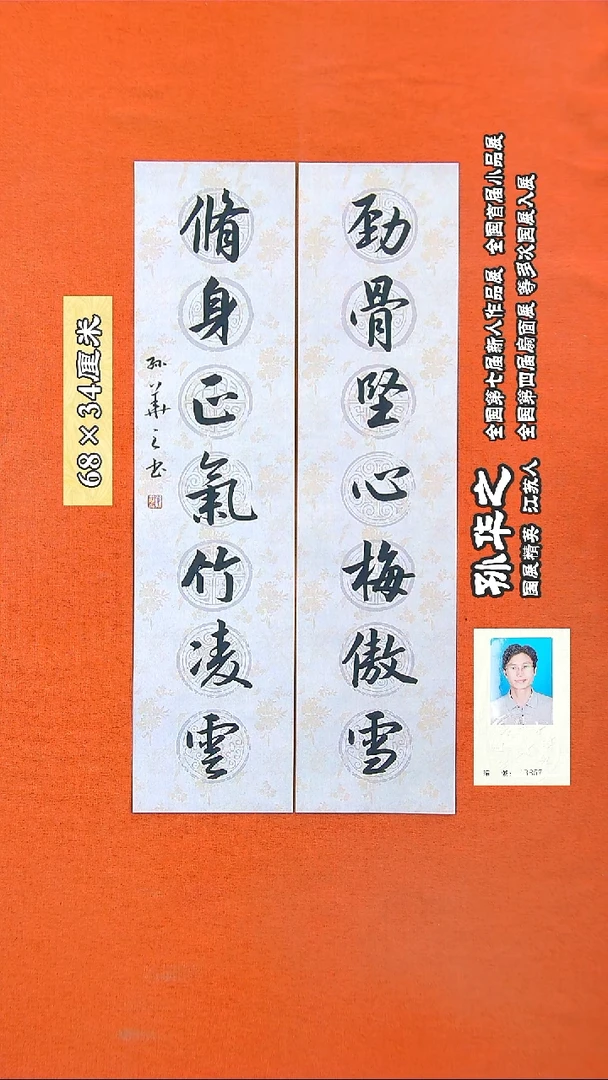 劲骨堅心梅傲雪
脩身正氣竹凌雲
孙華之书
68×34厘米
孙华之
国展精英 江苏人
全国第七届新人作品展 全国首届小品展
全国第四届扇面展 等多次国展入展